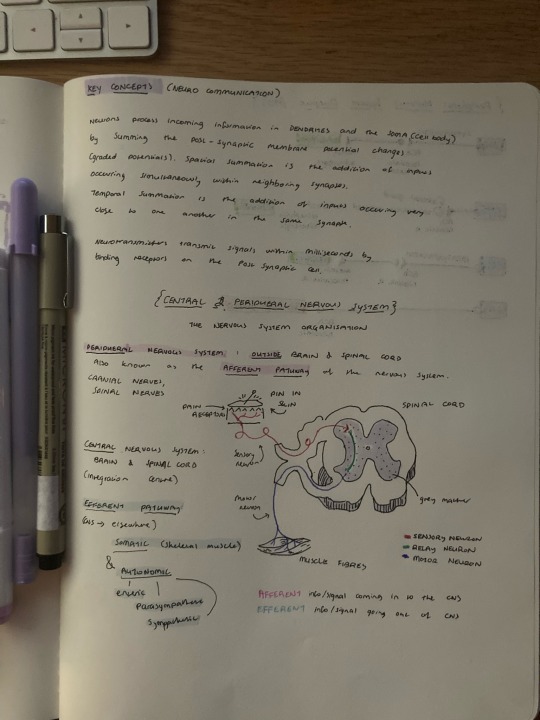 KEY CONCEPTS (NEURO COMMUNICATION)
Neurons process incoming information in DENDRITES and the SOMA (cell body)
by summing the post-synaptic membrane potential changes
(graded potentials). Spatial summation is the addition of inputs
occurring simultaneously within neighboring synapses.
Temporal summation is the addition of inputs occurring very
close to one another in the same synapse.
Neurotransmitters transmit signals within milliseconds by
binding receptors on the Post Synaptic Cell.
{CENTRAL & PERIPHERAL NERVOUS SYSTEM}
THE NERVOUS SYSTEM ORGANISATION
PERIPHERAL NERVOUS SYSTEM : OUTSIDE BRAIN & SPINAL CORD
Also known as the AFFERENT PATHWAY of the nervous system.
CRANIAL NERVES,
SPINAL NERVES
PAIN RECEPTORS
PIN IN SKIN
SPINAL CORD
Sensory neuron
CENTRAL NERVOUS SYSTEM :
BRAIN & SPINAL CORD
(integration centre)
Motor neuron
grey matter
EFFERENT PATHWAY
(CNS → elsewhere)
SOMATIC (skeletal muscle)
& AUTONOMIC
enteric
parasympathetic
sympathetic
MUSCLE FIBRES
SENSORY NEURON
RELAY NEURON
MOTOR NEURON
AFFERENT info/signal coming in to the CNS
EFFERENT info/signal going out of CNS